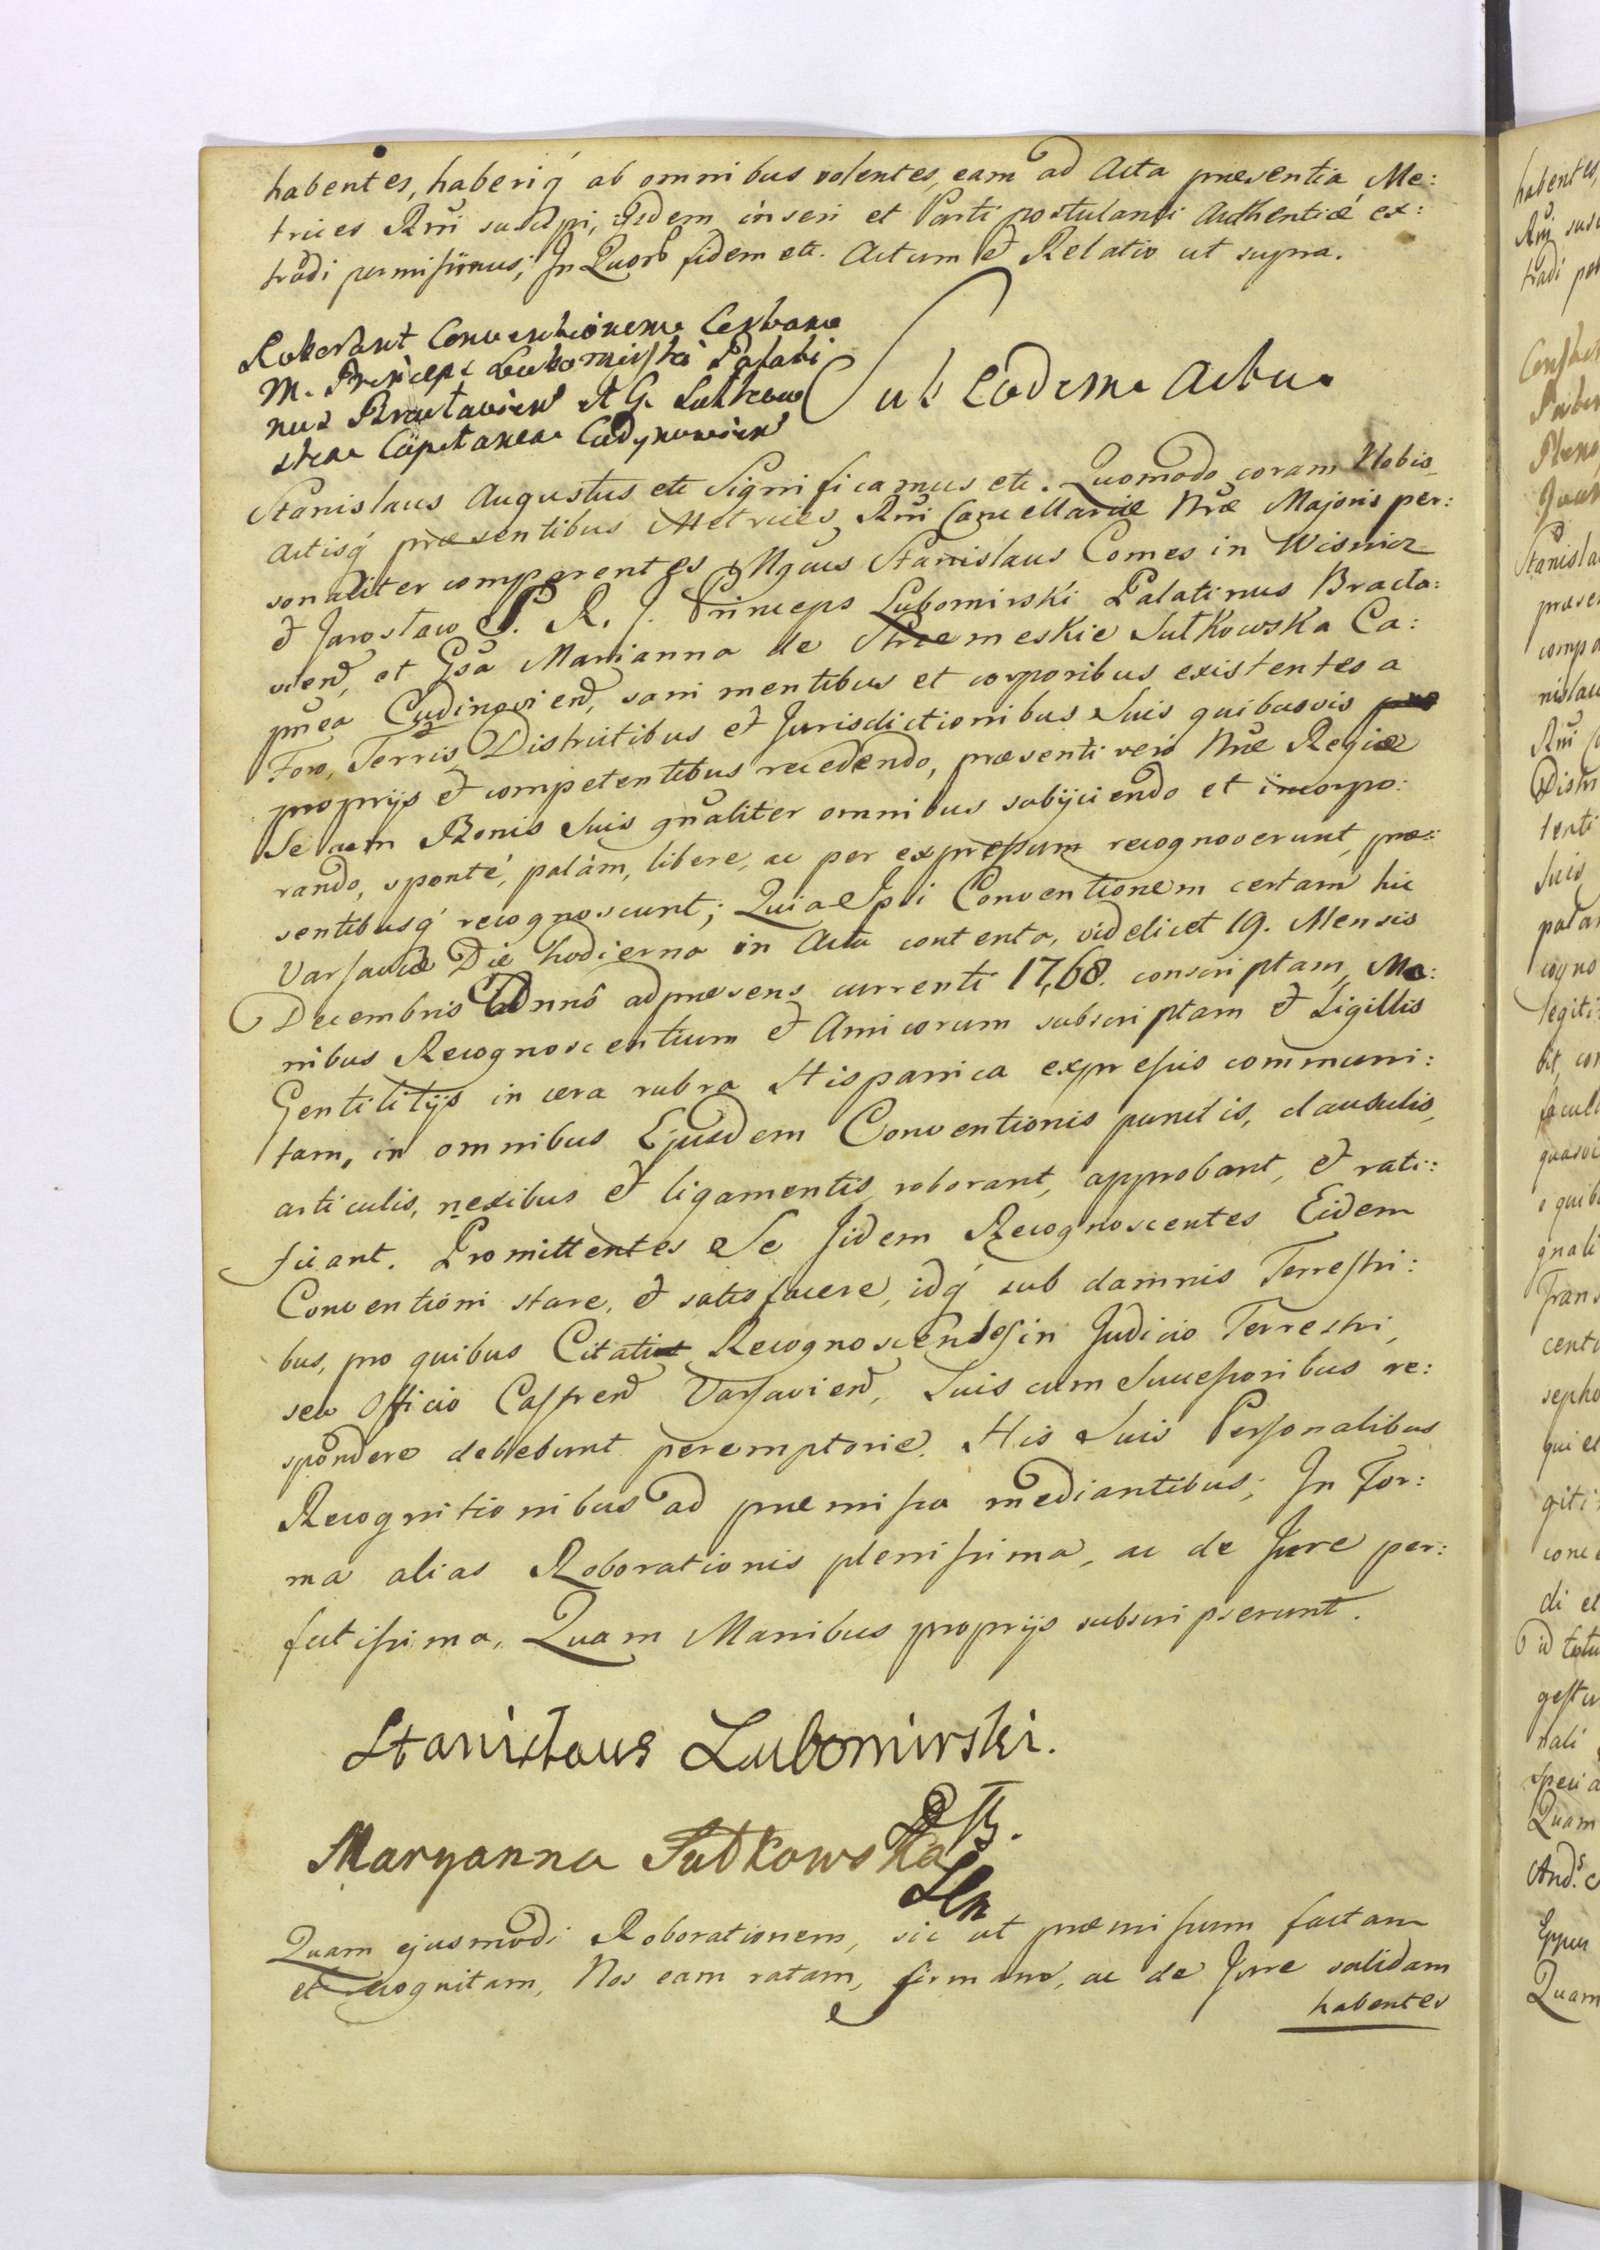 habentes, haberiq́ ab omnibus volentes, eam ad Acta præsentia Me:
trices Rñi suscipi, Jisdem inseri et Parti postulanti Authenticé ex:
tradi permisimus; In Quorũ fidem etc. Actum et Relatio ut supra.
Roborant Conventionem Certam
M. Princeps Lubomirski Palati
nus Braclavień et G. Sułkow
ska Capitanea Cudynovień
Sub Eodem Actu
Stanislaus Augustus etc Significamus etc. Quomodo coram Nobis
Actisq́ præsentibus Metrices Rñi Cancellariæ Nræ Majoris per:
sonaliter comparentes Mgcus Stanislaus Comes in Wisnicz
et Jarosław S. R. J. Princeps Lubomirski Palatinus Bracla:
vień, et Gsa Marianna de Strzemeskie Sułkowska Ca:
pnea Cudinovień, sani mentibus et corporibus existentes a
Foro, Terris Districtibus et Jurisdictionibus Suis quibusvis
proprijs et competentibus recedendo, præsenti veró Nræ Regiæ
Se cum Bonis Suis gñaliter omnibus subijciendo et incorpo:
rando, sponté, palám, libere, ac per expressum recognoverunt, præ:
sentibusq́ recognoscunt; Quia Ipsi Conventionem certam hic
Varsaviæ Die hodierna in Actu contenta, videlicet 19. Mensis
Decembris Anno adpræsens currenti 1768. conscriptam, Ma:
nibus Recognoscentium et Amicorum subscriptam et Sigillis
Gentilitijs in cera rubra Hispanica expressis communi:
tam, in omnibus Ejusdem Conventionis punctis, clausulis,
articulis, nexibus et ligamentis, roborant, approbant, et rati:
ficant. Promittentes Se Jidem Recognoscentes Eidem
Conventioni stare, et satisfacere, idq́ sub damnis Terrestri:
bus, pro quibus Citati Recognoscentes in Judicio Terrestri,
seu Officio Castreń Varsavień, Suis cum Successoribus re:
spondere debebunt peremptorie. His Suis Personalibus
Recognitionibus ad præmissa mediantibus; In For:
ma alias Roborationis plenissima, ac de Jure per:
fectissima, Quam Manibus proprijs subscripserunt.
Stanisłaus Lubomirski.
Maryanna Sułkowska
Quam ejusmodi Roborationem, sic ut præmissum factam
et recognitam, Nos eam ratam, firmam, ac de Jure validam
habentes